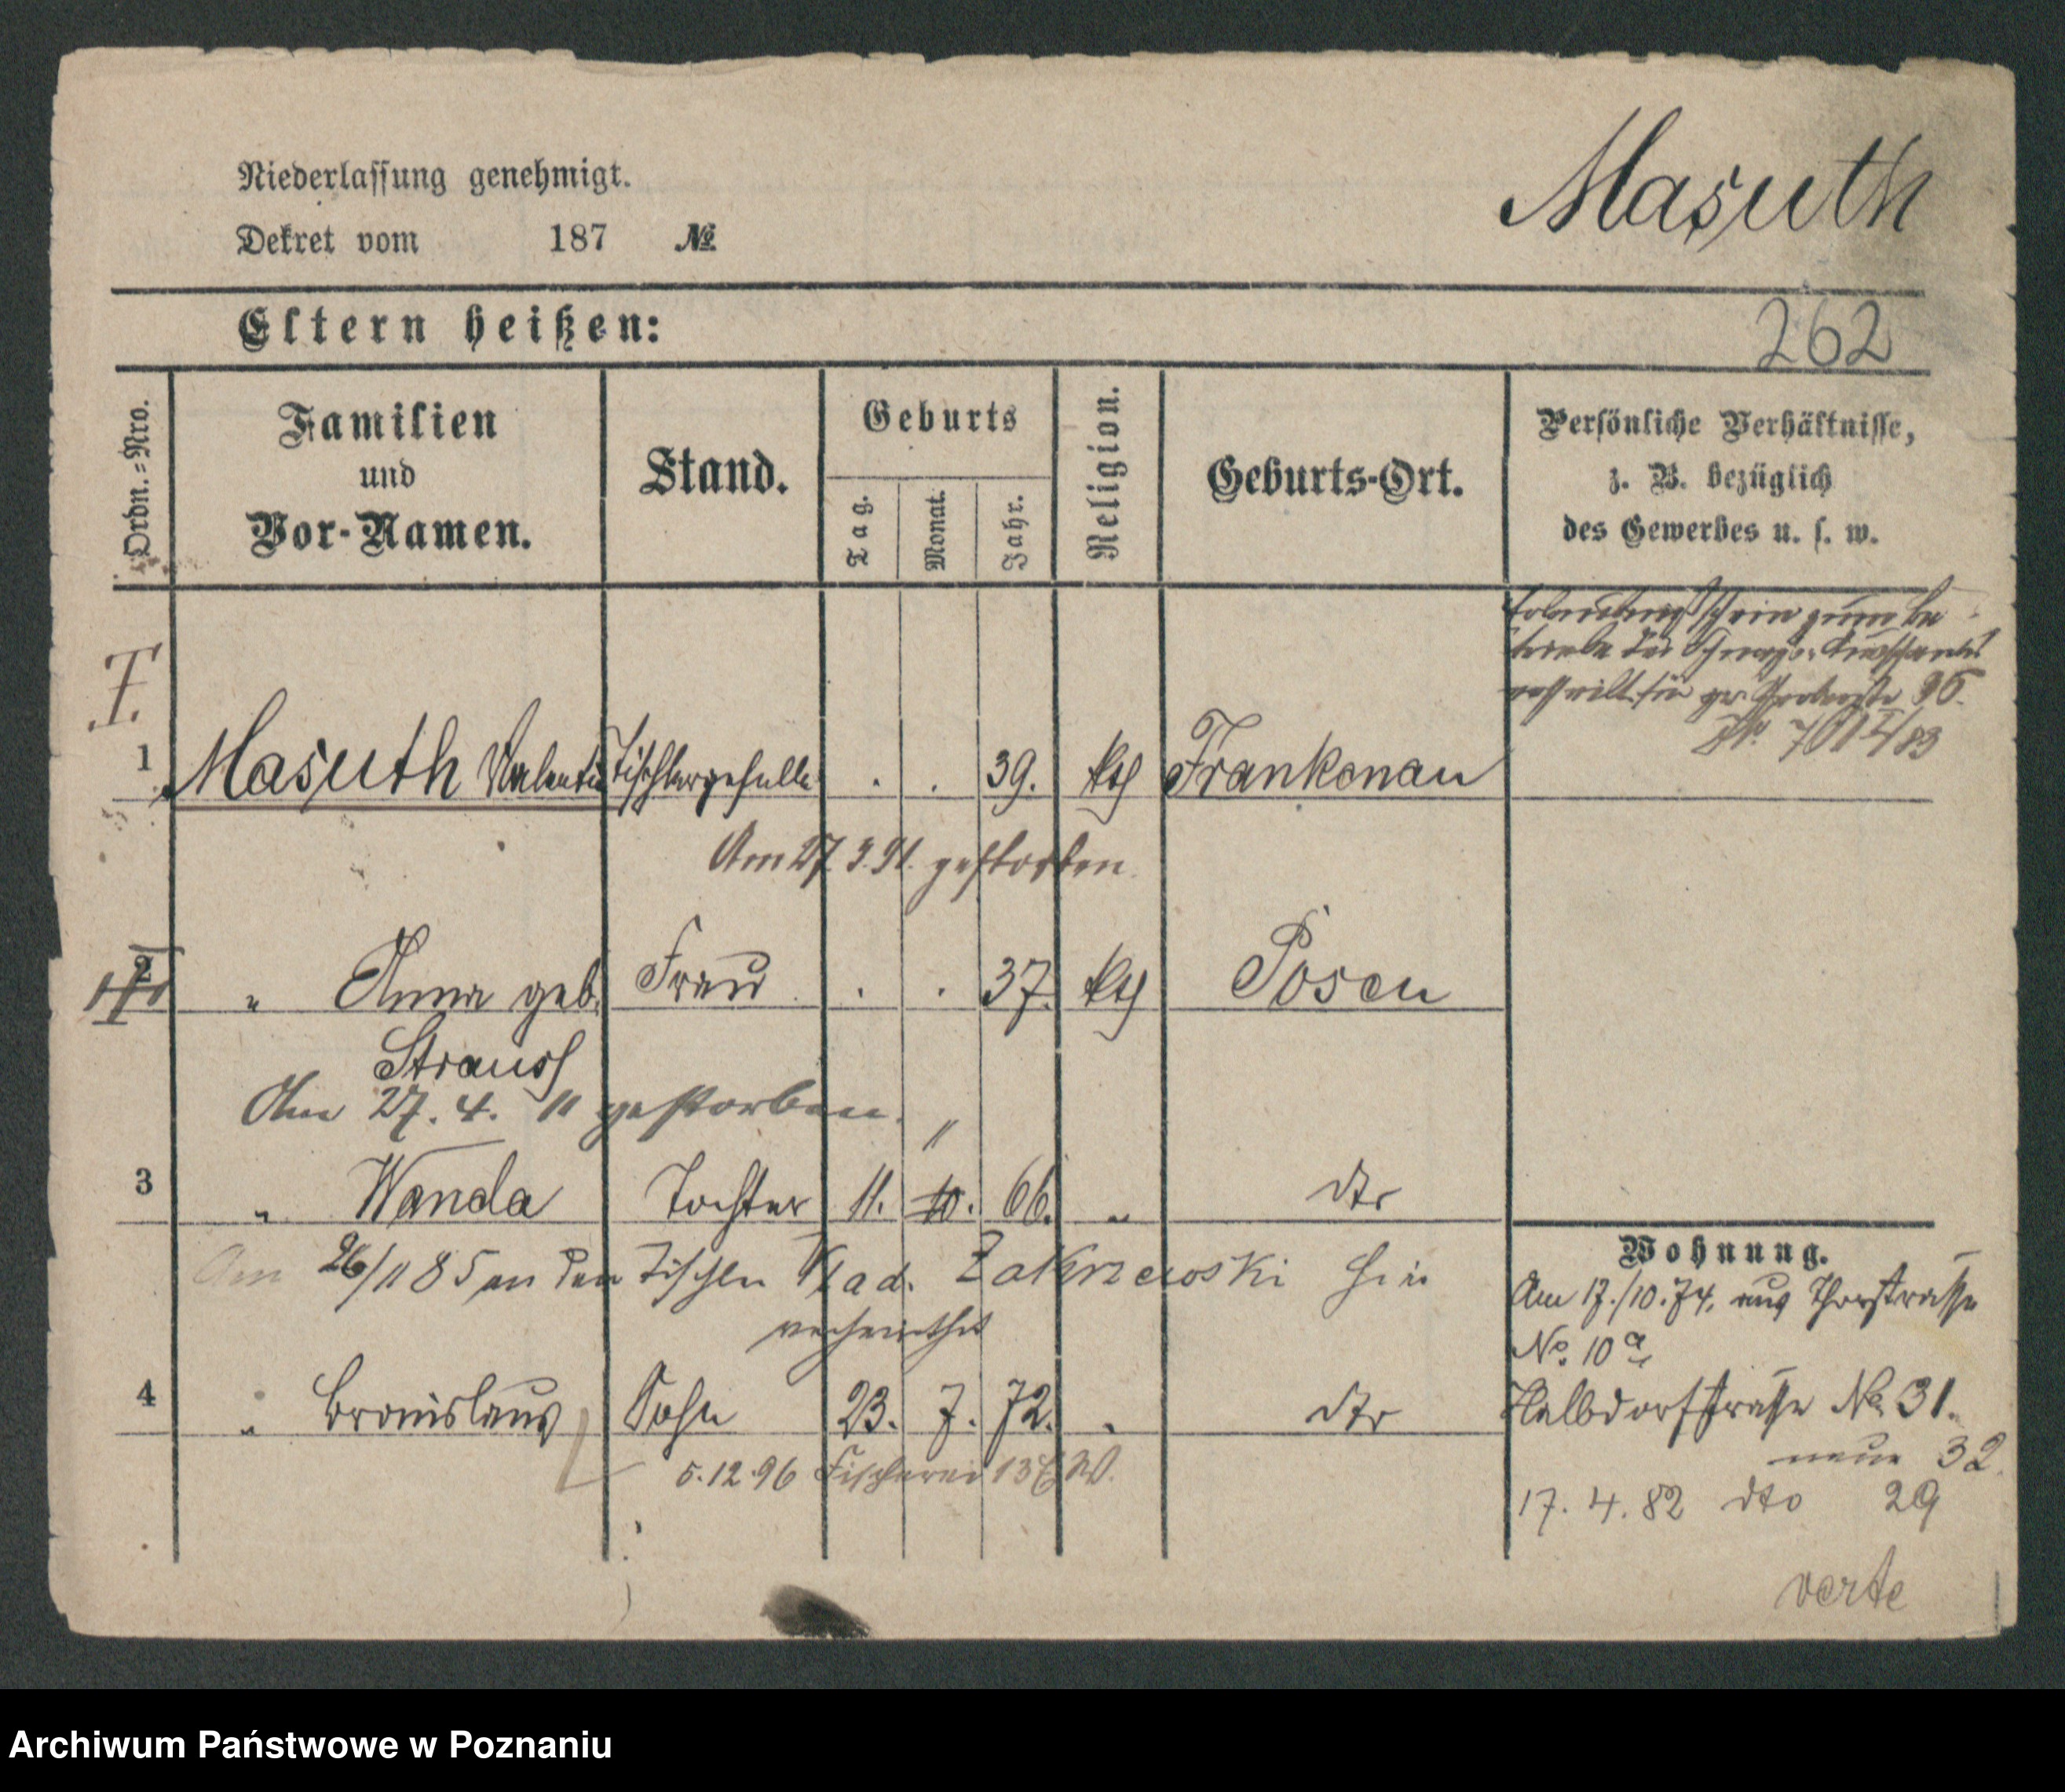 Niederlassung genehmigt.
Dekret vom 187 №
Masuth
Eltern heißen:
262
Ordn.=Nro.
Familien
und
Vor-Namen.
Stand.
Geburts
Tag.
Monat.
Jahr.
Religion.
Geburts-Ort.
Persönliche Verhältnisse,
z. B. bezüglich
des Gewerbes u. s. w.
Erlaubnißschein zum Be-
triebe der
ertheilt für gr. 36.
I.
1 Masuth Valentin Tischlergeselle . . 39. kth Frankenau
Am 27. 3. 91. gestorben.
2 " Anna geb. Frau . . 37. kth Posen
Strauss
Am 27. 4. 11 gestorben.
11
3 " Wanda Tochter 11. 10. 66. " dto
Am 26/11 85 an den Tischler Vlad. Zakrzewski hier
verheirathet
4 " Bronislaus Sohn 23. 7. 72. " dto
5.12.96 Fischerei 13
Wohnung.
Am 17./10.74. aus Thorstrasse
No. 10a
Halbdorfstrasse No. 31.
neue 32.
17. 4. 82 dto 29
verte
Archiwum Państwowe w Poznaniu